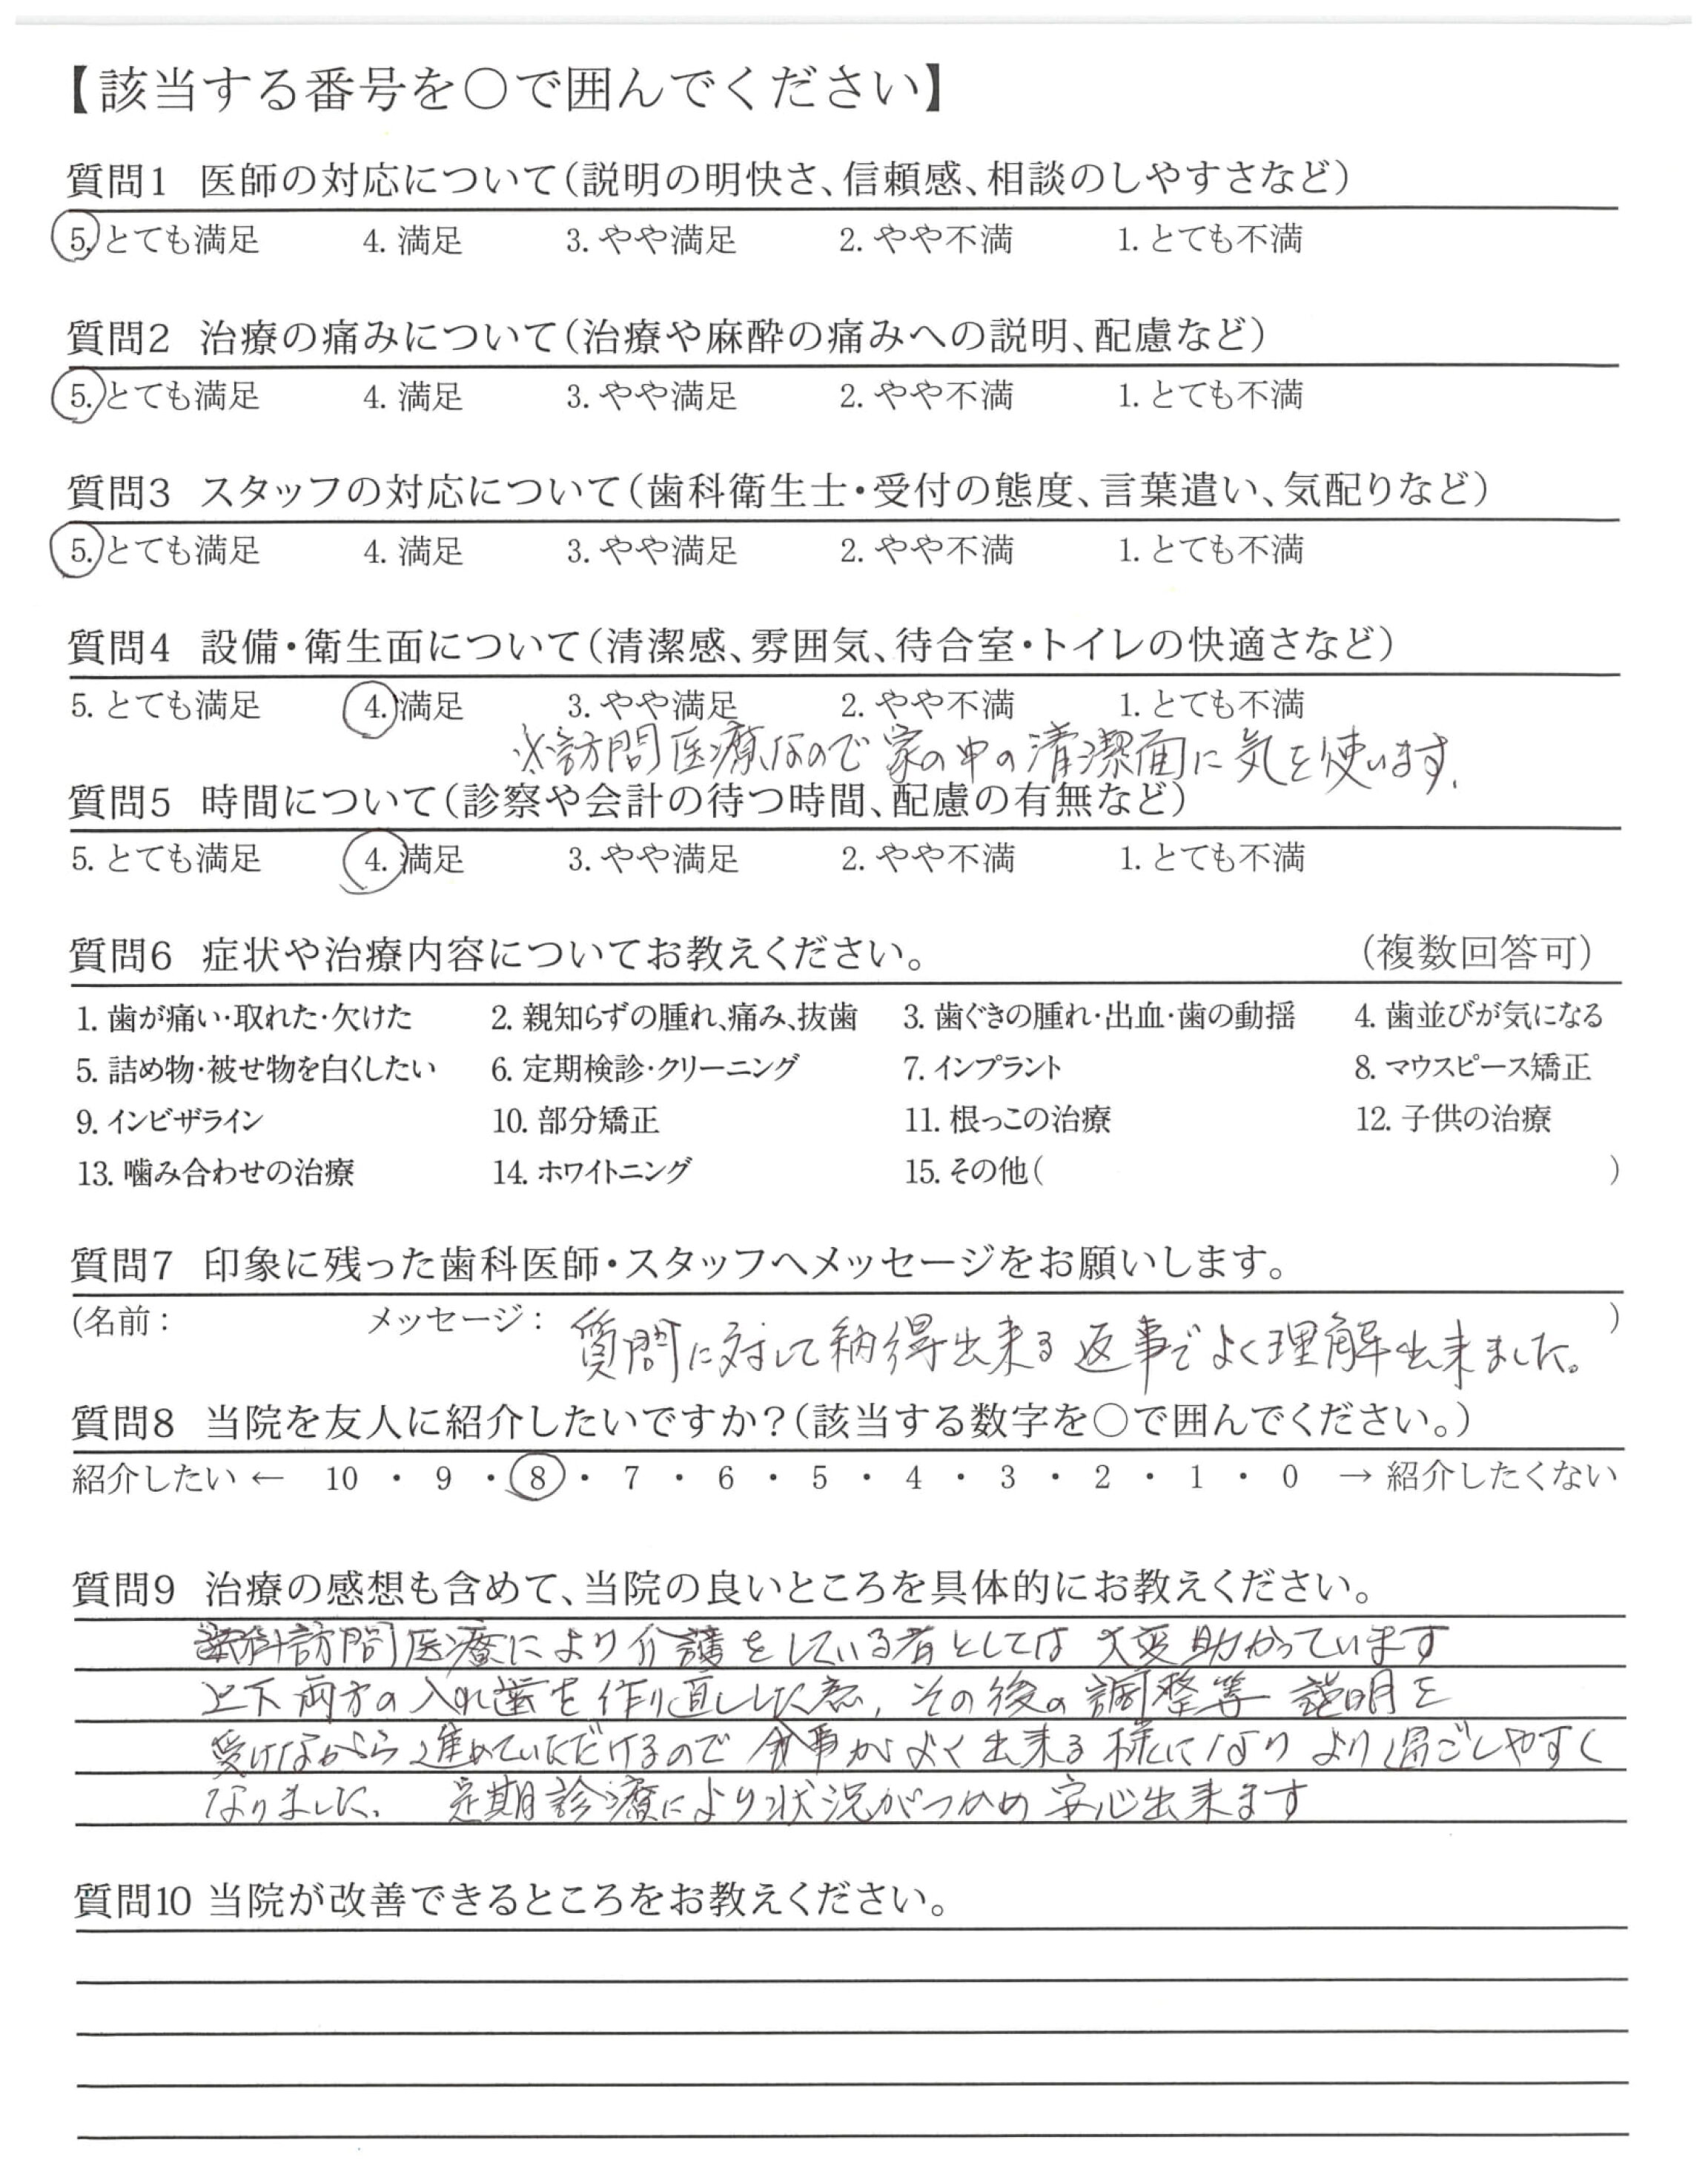 【該当する番号を○で囲んでください】
質問1 医師の対応について(説明の明快さ、信頼感、相談のしやすさなど)
5. とても満足 4. 満足 3. やや満足 2. やや不満 1. とても不満
質問2 治療の痛みについて(治療や麻酔の痛みへの説明、配慮など)
5. とても満足 4. 満足 3. やや満足 2. やや不満 1. とても不満
質問3 スタッフの対応について(歯科衛生士・受付の態度、言葉遣い、気配りなど)
5. とても満足 4. 満足 3. やや満足 2. やや不満 1. とても不満
質問4 設備・衛生面について(清潔感、雰囲気、待合室・トイレの快適さなど)
5. とても満足 4. 満足 3. やや満足 2. やや不満 1. とても不満
※訪問医療なので家の中の清潔面に気を使います.
質問5 時間について(診察や会計の待つ時間、配慮の有無など)
5. とても満足 4. 満足 3. やや満足 2. やや不満 1. とても不満
質問6 症状や治療内容についてお教えください。 (複数回答可)
1. 歯が痛い・取れた・欠けた 2. 親知らずの腫れ、痛み、抜歯 3. 歯ぐきの腫れ・出血・歯の動揺 4. 歯並びが気になる
5. 詰め物・被せ物を白くしたい 6. 定期検診・クリーニング 7. インプラント 8. マウスピース矯正
9. インビザライン 10. 部分矯正 11. 根っこの治療 12. 子供の治療
13. 噛み合わせの治療 14. ホワイトニング 15. その他( )
質問7 印象に残った歯科医師・スタッフへメッセージをお願いします。
(名前: メッセージ: 質問に対して納得出来る返事でよく理解出来ました。 )
質問8 当院を友人に紹介したいですか?(該当する数字を○で囲んでください。)
紹介したい ← 10 ・ 9 ・ 8 ・ 7 ・ 6 ・ 5 ・ 4 ・ 3 ・ 2 ・ 1 ・ 0 → 紹介したくない
質問9 治療の感想も含めて、当院の良いところを具体的にお教えください。
歯科訪問医療により介護をしている者としては大変助かっています
上下両方の入れ歯を作り直しした為, その後の調整等 説明を
受けながら進めていただけるので食事がよく出来る様になり より過ごしやすく
なりました. 定期診療により状況がつかめ安心出来ます
質問10 当院が改善できるところをお教えください。